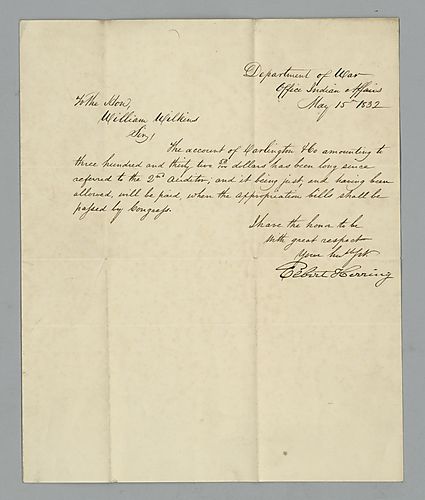 Department of War
Office Indian Affairs
May 15th 1832
To the Hon,
William Wilkins
Sir,
The account of Darlington & Co amounting to
three hundred and thirty two dollars has been long since
referred to the 2nd Auditor; and it being just, and having been
allowed, will be paid, when the appropriation bills shall be
passed by Congress.
I have the honor to be
With great respect
Your
Elbert Herring